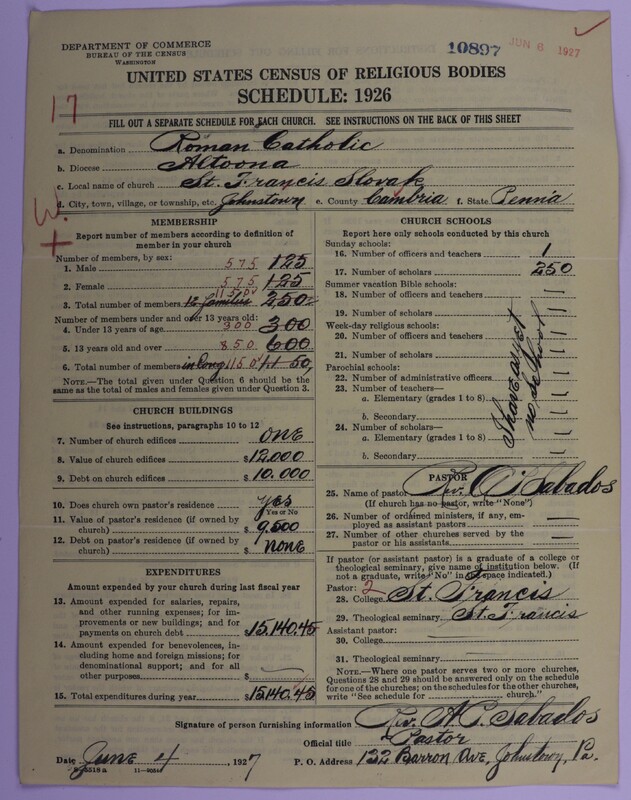 DEPARTMENT OF COMMERCE
BUREAU OF THE CENSUS
WASHINGTON
10897
JUN 8 1927
UNITED STATES CENSUS OF RELIGIOUS BODIES
SCHEDULE: 1926
17
FILL OUT A SEPARATE SCHEDULE FOR EACH CHURCH. SEE INSTRUCTIONS ON THE BACK OF THIS SHEET
a. Denomination Roman Catholic
b. Diocese Altoona
c. Local name of church St. Francis Slovak
d. City, town, village, or township, etc. Johnstown e. County Cambria f. State Penn'a
W.
+
MEMBERSHIP
Report number of members according to definition of
member in your church
Number of members, by sex:
1. Male 575 125
2. Female 575 125
3. Total number of members 1150 families 250
Number of members under and over 13 years old:
4. Under 13 years of age 300 300
5. 13 years old and over 850 600
6. Total number of members 1150
NOTE.—The total given under Question 6 should be
same as the total of males and females given under Question 3.
CHURCH BUILDINGS
See instructions, paragraphs 10 to 12
7. Number of church edifices ONE
8. Value of church edifices $12.000
9. Debt on church edifices $10.000
10. Does church own pastor's residence yes
Yes or No
11. Value of pastor's residence (if owned by
church) $9,500
12. Debt on pastor's residence (if owned by
church) $ none
EXPENDITURES
Amount expended by your church during last fiscal year
13. Amount expended for salaries, repairs,
and other running expenses; for im-
provements or new buildings; and for
payments on church debt $15,140.45
14. Amount expended for benevolences,
including home and foreign missions; for
denominational support; and for all
other purposes $ —
15. Total expenditures during year $15,140.45
CHURCH SCHOOLS
Report here only schools conducted by this church
Sunday schools:
16. Number of officers and teachers 1
17. Number of scholars 250
Summer vacation Bible schools:
18. Number of officers and teachers
19. Number of scholars
Week-day religious schools:
20. Number of officers and teachers
21. Number of scholars
Parochial schools:
22. Number of administrative officers
23. Number of teachers—
a. Elementary (grades 1 to 8)
b. Secondary
24. Number of scholars—
a. Elementary (grades 1 to 8)
b. Secondary
no school
PASTOR
25. Name of pastor Rev. Sabados
(If church has no pastor, write "None")
26. Number of ordained ministers, if any, em-
ployed as assistant pastors —
27. Number of other churches served by the
pastor or his assistants —
If pastor (or assistant pastor) is a graduate of a college or
theological seminary, give name of institution below. (If
not a graduate, write "No" in space indicated.)
Pastor: 2
28. College St. Francis
29. Theological seminary St. Francis
Assistant pastor:
30. College
31. Theological seminary
NOTE.—Where one pastor serves two or more churches,
Questions 28 and 29 should be answered only on the schedule
for one of the churches; on the schedules for the other churches,
write "See schedule for church."
Signature of person furnishing information Rev. A.C. Sabados
Official title Pastor
Date June 4, 1927 P. O. Address 132 Barron Ave, Johnstown, Pa.